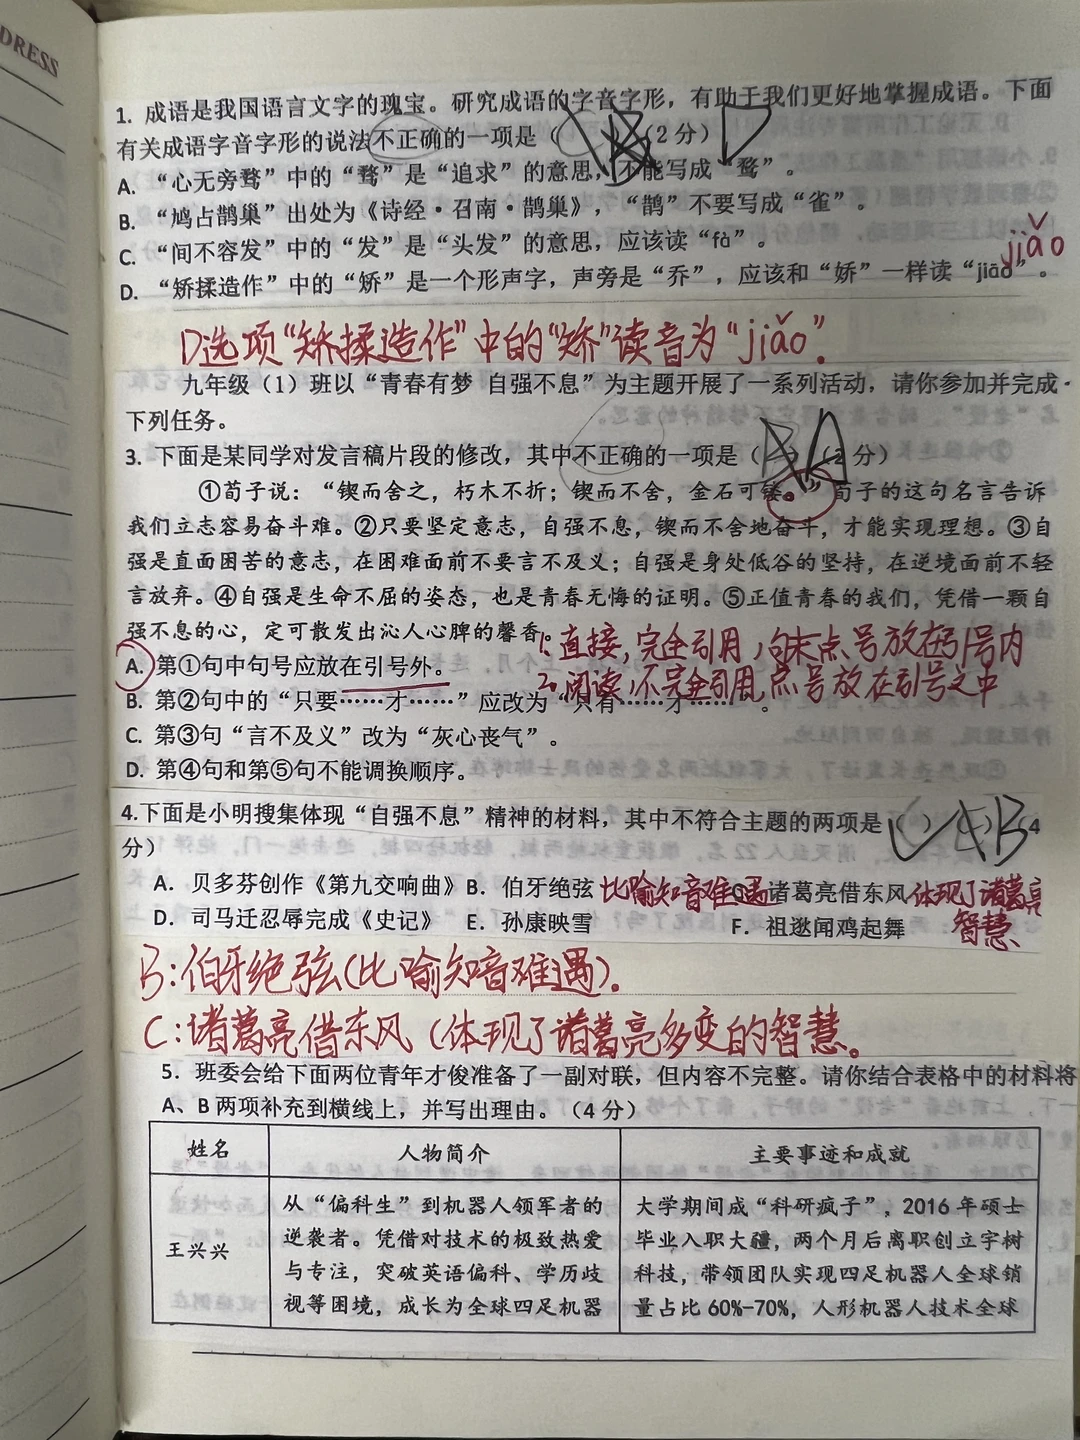 DRESS
1. 成语是我国语言文字的瑰宝。研究成语的字音字形，有助于我们更好地掌握成语。下面
有关成语字音字形的说法不正确的一项是（ B ）（2分） D
A. “心无旁骛”中的“骛”是“追求”的意思，不能写成“鹜”。
B. “鸠占鹊巢”出处为《诗经·召南·鹊巢》，“鹊”不要写成“雀”。
C. “间不容发”中的“发”是“头发”的意思，应该读“fà”。
jiǎo
D. “矫揉造作”中的“矫”是一个形声字，声旁是“乔”，应该和“娇”一样读“jiāo”。
D选项“矫揉造作”中的“矫”读音为“jiǎo”.
九年级（1）班以“青春有梦 自强不息”为主题开展了一系列活动，请你参加并完成
下列任务。
3. 下面是某同学对发言稿片段的修改，其中不正确的一项是（ ）（2分） A
①荀子说：“锲而舍之，朽木不折；锲而不舍，金石可镂。”荀子的这句名言告诉
我们立志容易奋斗难。②只要坚定意志，自强不息，锲而不舍地奋斗，才能实现理想。③自
强是直面困苦的意志，在困难面前不要言不及义；自强是身处低谷的坚持，在逆境面前不轻
言放弃。④自强是生命不屈的姿态，也是青春无悔的证明。⑤正值青春的我们，凭借一颗自
强不息的心，定可散发出沁人心脾的馨香。
1. 直接，完全引用，句末点号放在引号内
A. 第①句中句号应放在引号外。
2. 间读，不完全引用，点号放在引号之中
B. 第②句中的“只要……才……”应改为“只有……才……”。
C. 第③句“言不及义”改为“灰心丧气”。
D. 第④句和第⑤句不能调换顺序。
4.下面是小明搜集体现“自强不息”精神的材料，其中不符合主题的两项是（ ）（ ）（4 B
分）
A. 贝多芬创作《第九交响曲》 B. 伯牙绝弦 比喻知音难遇 C. 诸葛亮借东风 体现了诸葛亮
智慧
D. 司马迁忍辱完成《史记》 E. 孙康映雪 F. 祖逖闻鸡起舞
B:伯牙绝弦(比喻知音难遇).
C:诸葛亮借东风（体现了诸葛亮多变的智慧。
5. 班委会给下面两位青年才俊准备了一副对联，但内容不完整。请你结合表格中的材料将
A、B两项补充到横线上，并写出理由。（4分）
姓名 人物简介 主要事迹和成就
王兴兴
从“偏科生”到机器人领军者的
逆袭者。凭借对技术的极致热爱
与专注，突破英语偏科、学历歧
视等困境，成长为全球四足机器
大学期间成“科研疯子”，2016年硕士
毕业入职大疆，两个月后离职创立宇树
科技，带领团队实现四足机器人全球销
量占比60%-70%，人形机器人技术全球